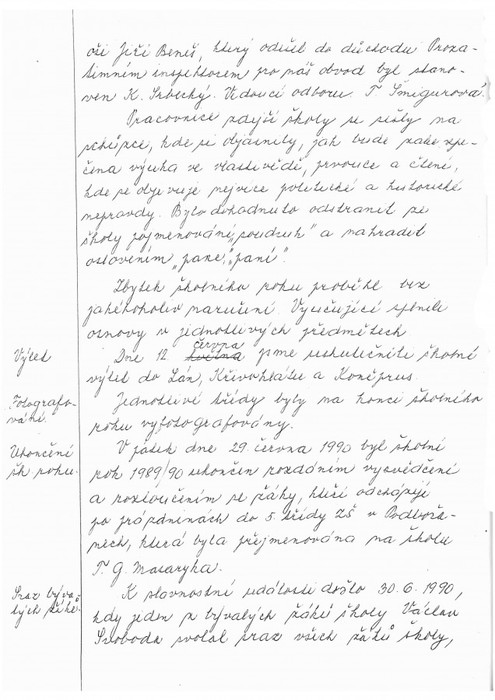 oři Jiří Beneš, který odešel do důchodu Proza-
tímním inspektorem pro náš obvod byl stano-
ven K. Srbecký. Vedoucí odboru T. Šmigurová.
Pracovnice zdejší školy se sešly na
schůzce, kde si objasnily, jak bude zabezpe-
čena výuka ve vlastivědě, prvouce a čtení,
kde se objevuje nejvíce politické a historické
nepravdy. Bylo dohodnuto odstranit ze
školy pojmenování „soudruh" a nahradit
oslovením „pane", „paní".
Zbytek školního roku proběhl bez
jakéhokoliv narušení Vyučující splnili
osnovy v jednotlivých předmětech
Výlet
Dne 12. června jsme uskutečnili školní
výlet do Lán, Křivoklátu a Koněprus.
Fotografo-
vání.
Jednotlivé třídy byly na konci školního
roku vyfotografovány.
Ukončení
šk. roku.
V pátek dne 29. června 1990 byl školní
rok 1989/90 ukončen rozdáním vysvědčení
a rozloučením se žáky, kteří odcházejí
po prázdninách do 5. třídy ZŠ v Podbořa-
nech, která byla přejmenována na školu
T. G. Masaryka.
Sraz býva-
lých žáků.
K slavnostní události došlo 30. 6. 1990,
kdy jeden z bývalých žáků školy Václav
Svoboda svolal sraz všech žáků školy,